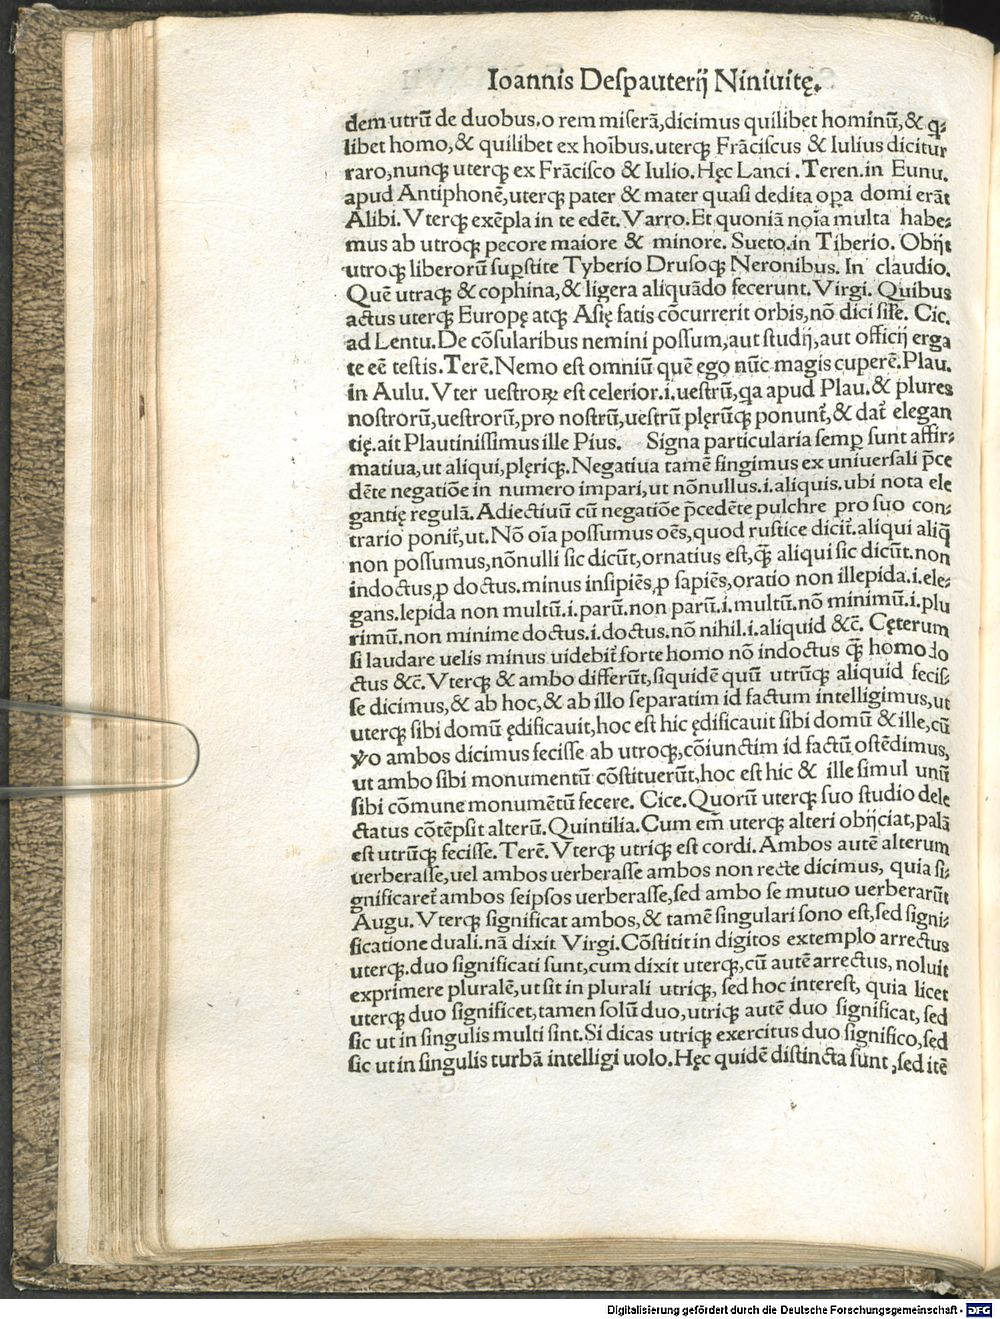 Ioannis Despauterij Niniuitę.
dem utrũ de duobus.o rem miserã,dicimus quilibet hominũ,& q̃-
libet homo,& quilibet ex hoĩbus.uterqꝫ Frãciscus & Iulius dicitur
raro,nunqꝫ uterqꝫ ex Frãcisco & Iulio.Hęc Lanci.Teren.in Eunu.
apud Antiphonẽ,uterqꝫ pater & mater quasi dedita oꝑa domi erãt
Alibi.Vterqꝫ exẽpla in te edẽt.Varro.Et quoniã noĩa multa habe-
mus ab utroqꝫ pecore maiore & minore. Sueto.in Tiberio. Obijt
utroqꝫ liberorũ suꝑstite Tyberio Drusoqꝫ Neronibus. In claudio.
Quẽ utraqꝫ & cophina,& ligera aliquãdo fecerunt.Virgi. Quibus
actus uterqꝫ Europę atqꝫ Asię fatis cõcurrerit orbis,nõ dici sil̃e. Cic.
ad Lentu.De cõsularibus nemini possum,aut studij,aut officij erga
te eẽ testis.Terẽ.Nemo est omniũ quẽ ego nũc magis cuperẽ.Plau.
in Aulu. Vter uestroꝝ est celerior.i.uestrũ,qa apud Plau.& plures
nostrorũ,uestrorũ,pro nostrũ,uestrũ plęrũqꝫ ponunt̃,& dat̃ elegan
tię.ait Plautinissimus ille Pius. Signa particularia semꝑ sunt affir-
matiua,ut aliqui,plęriqꝫ.Negatiua tamẽ fingimus ex uniuersali p̃ce
dẽte negatiõe in numero impari,ut nõnullus.i.aliquis.ubi nota ele
gantię regulã.Adiectiuũ cũ negatiõe p̃cedẽte pulchre pro suo con-
trario ponit̃,ut.Nõ oĩa possumus oẽs,quod rustice dicit̃.aliqui aliq̃
non possumus,nõnulli sic dicũt,ornatius est,q̃ꝫ aliqui sic dicũt.non
indoctus,ꝓ doctus.minus insipiẽs,ꝓ sapiẽs,oratio non illepida.i.ele-
gans.lepida non multũ.i.parũ.non parũ.i.multũ.nõ minimũ.i.plu
rimũ.non minime doctus.i.doctus.nõ nihil.i.aliquid &c̃. Cęterum
si laudare uelis minus uidebit̃ forte homo nõ indoctus q̃ꝫ homo do
ctus &c̃.Vterqꝫ & ambo differũt,siquidẽ quũ utrũqꝫ aliquid fecis-
se dicimus,& ab hoc,& ab illo separatim id factum intelligimus,ut
uterqꝫ sibi domũ ędificauit,hoc est hic ędificauit sibi domũ & ille,cũ
v̊o ambos dicimus fecisse ab utroqꝫ,cõiunctim id factũ ostẽdimus,
ut ambo sibi monumentũ cõstituerũt,hoc est hic & ille simul unũ
sibi cõmune monumẽtũ fecere. Cice.Quorũ uterqꝫ suo studio dele
ctatus cõtẽpsit alterũ.Quintilia.Cum em̃ uterqꝫ alteri obijciat,palã
est utrũqꝫ fecisse.Terẽ.Vterqꝫ utriqꝫ est cordi.Ambos autẽ alterum
uerberasse,uel ambos uerberasse ambos non recte dicimus, quia si-
gnificaret̃ ambos seipsos uerberasse,sed ambo se mutuo uerberarũt
Augu. Vterqꝫ significat ambos,& tamẽ singulari sono est,sed signi-
ficatione duali.nã dixit Virgi.Cõstitit in digitos extemplo arrectus
uterqꝫ.duo significati sunt,cum dixit uterqꝫ,cũ autẽ arrectus, noluit
exprimere pluralẽ,ut sit in plurali utriqꝫ, sed hoc interest, quia licet
uterqꝫ duo significet,tamen solũ duo,utriqꝫ autẽ duo significat, sed
sic ut in singulis multi sint.Si dicas utriqꝫ exercitus duo significo,sed
sic ut in singulis turbã intelligi uolo.Hęc quidẽ distincta sunt,sed itẽ
Digitalisierung gefördert durch die Deutsche Forschungsgemeinschaft - DFG